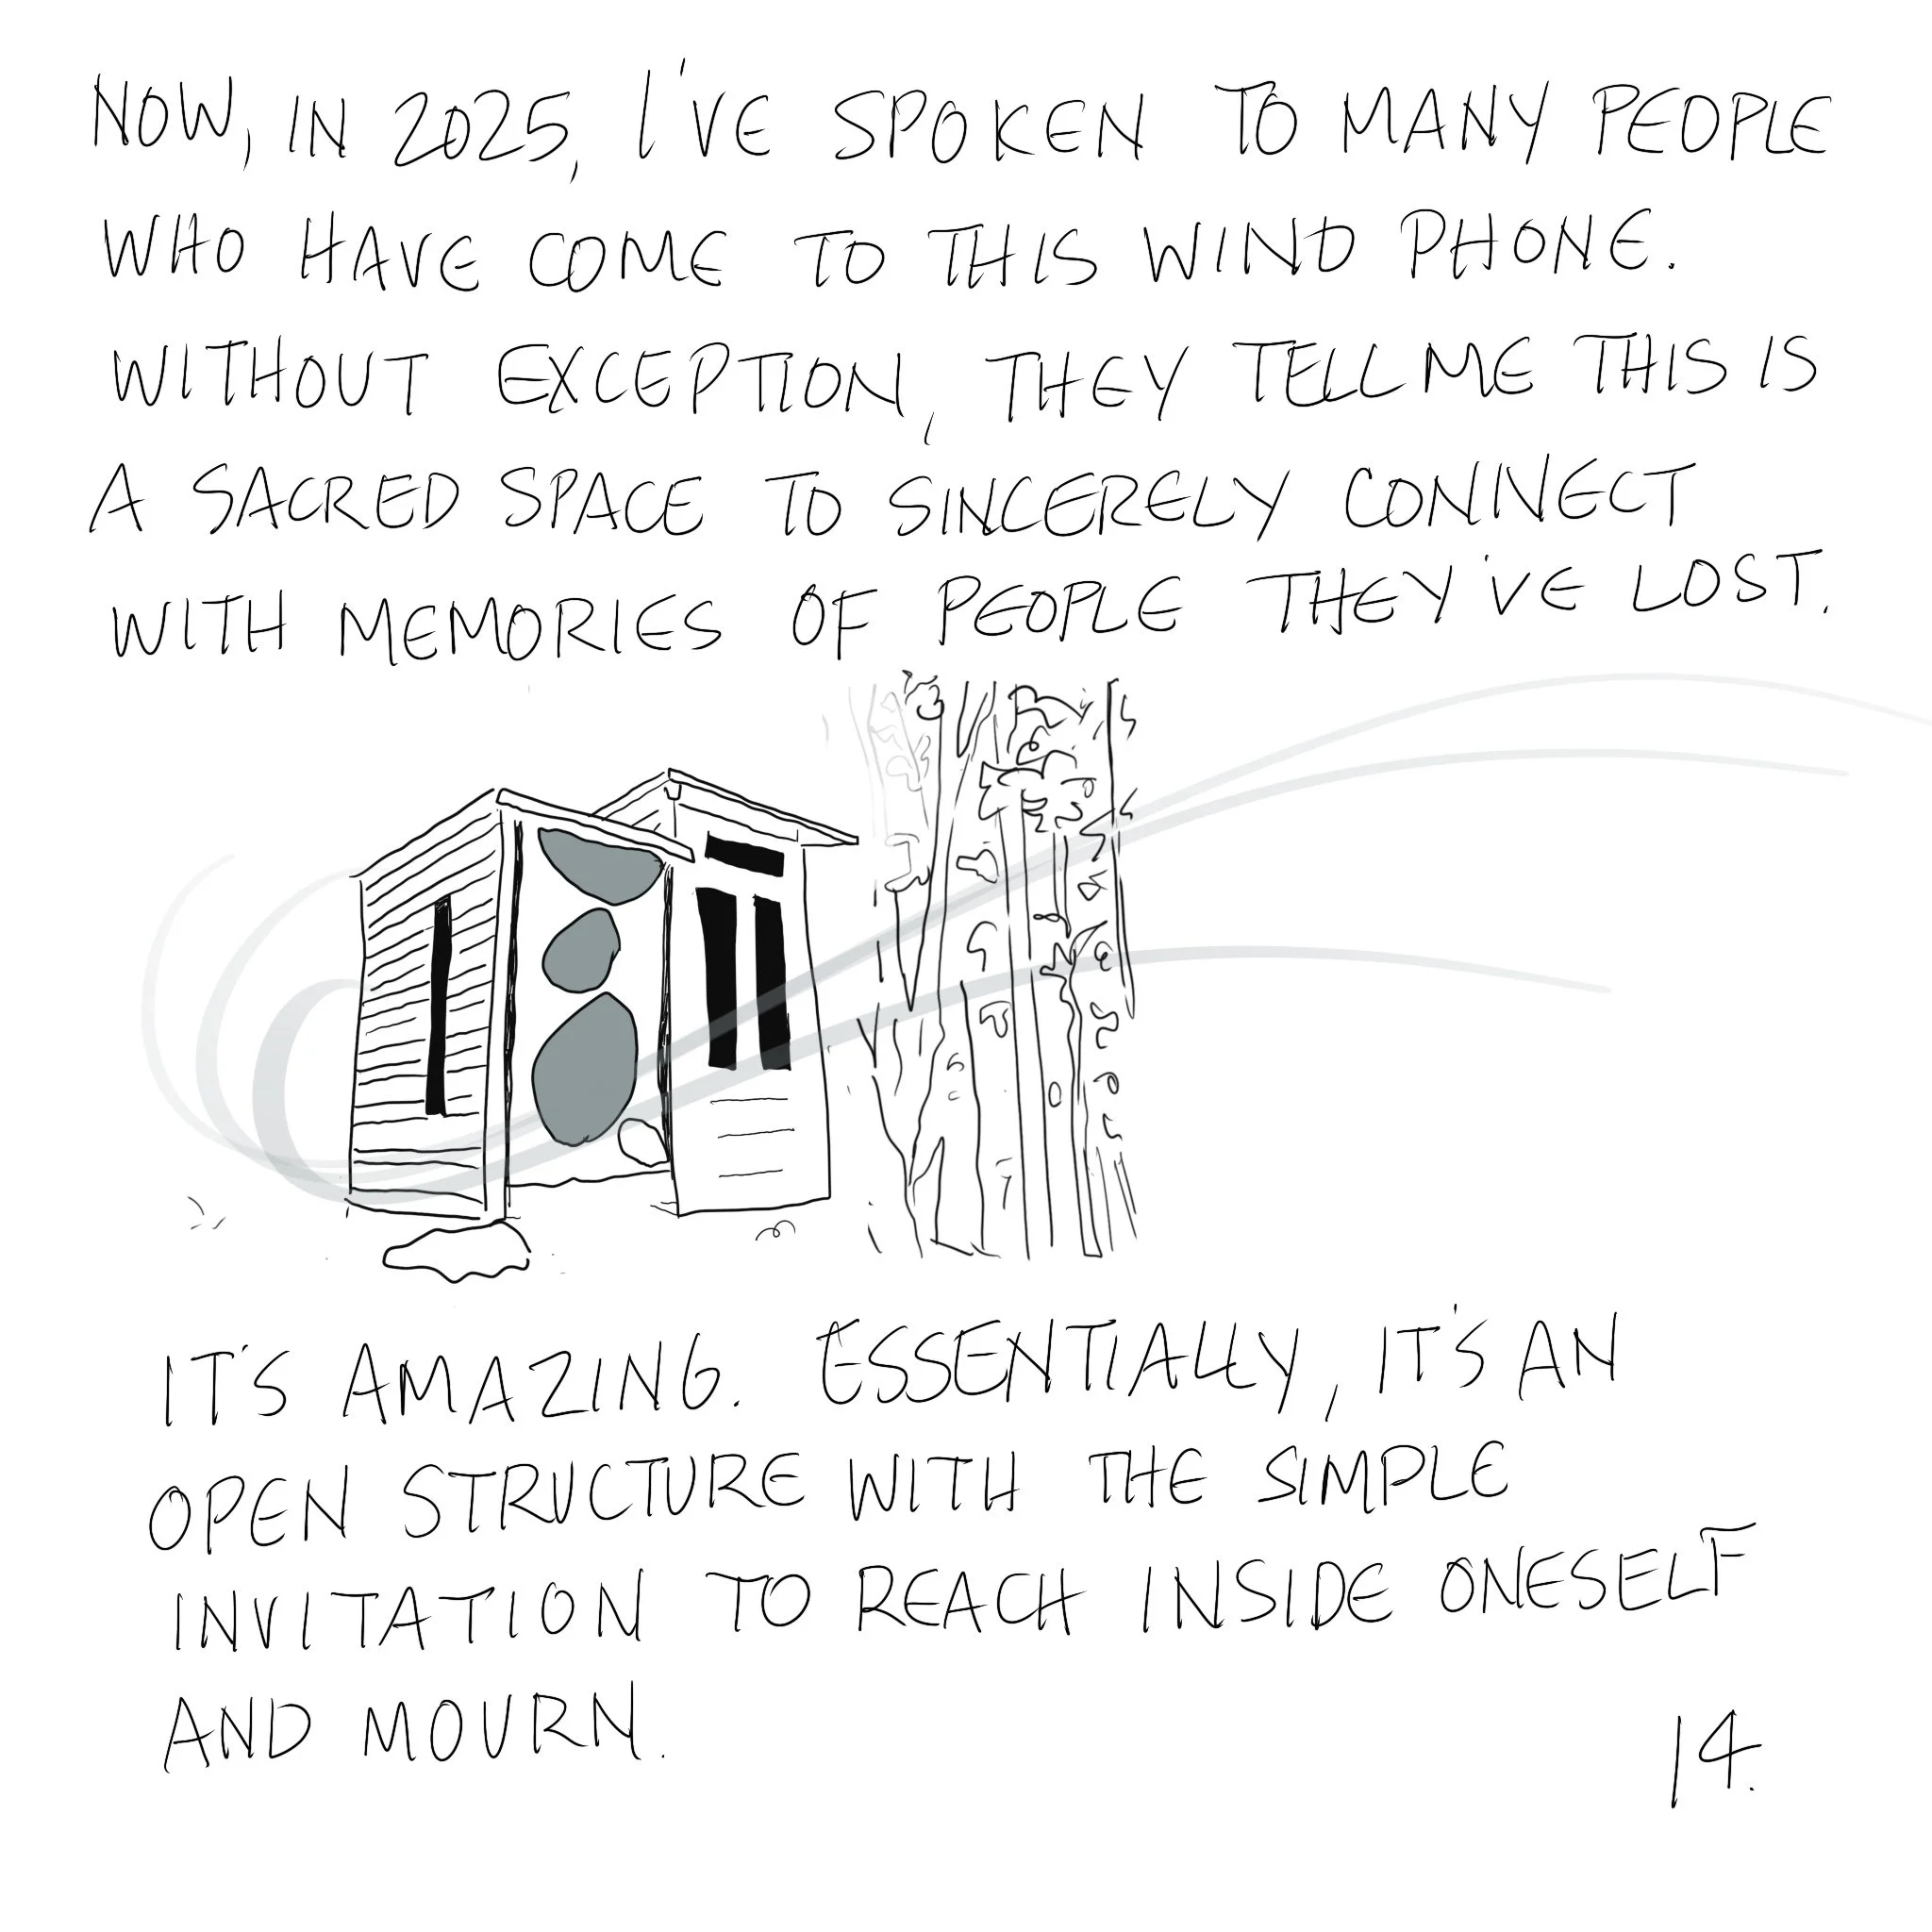 NOW, IN 2025, I'VE SPOKEN TO MANY PEOPLE
WHO HAVE COME TO THIS WIND PHONE.
WITHOUT EXCEPTION, THEY TELL ME THIS IS
A SACRED SPACE TO SINCERELY CONNECT
WITH MEMORIES OF PEOPLE THEY'VE LOST.
IT'S AMAZING. ESSENTIALLY, IT'S AN
OPEN STRUCTURE WITH THE SIMPLE
INVITATION TO REACH INSIDE ONESELF
AND MOURN.
14.